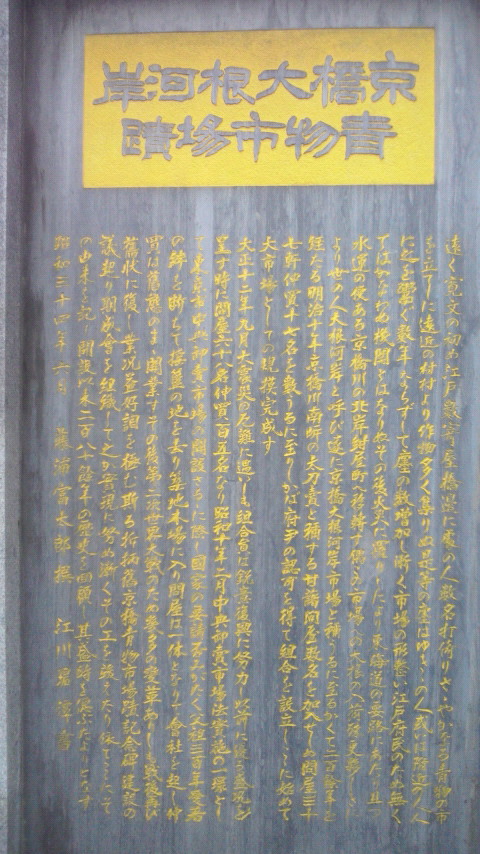 京橋大根河岸
青物市場蹟
遠く寛文の初め江戸数寄屋橋辺に處の人数名打倚りささやかなる青物の市
を立
遠近の村村より作物多く集りぬ是等の
に之を
数年ならずして
の数増加し漸く市場の形整い江戸府民のため無く
てはかなわぬ機関とはなりぬその後
東海道の要路にあたり且つ
水運の便ある京橋川の北岸紺屋町に移転す
市場
大根の入荷
より世の人大根河岸と呼び遂に京橋大根河岸市場と称うるに至るかくて二百餘年を
経たる明治十年京橋川南岸の太刀賣と称する甘藷問屋数名を加入せしめ問屋三十
七軒仲買十七名を数うるに至りしかば府庁の認可を得て組合を設立しここに始めて
大市場としての規模完成す
大正十二年九月大震災の厄難に遇いしも組合員は鋭意復興に努力し以前に優る盛況を
呈す時に問屋六十八名仲買百五名なり昭和十年二月中央卸賣市場法実施の一環とし
て東京市中央卸賣市場の開設さるるに際し国家の要請
父祖三百年愛着
の絆を断ちて揺籃の地を去り築地本場に入り問屋は一体となりて会社を起し仲
買は旧態のまま開業すその後第二次世界大戦のため幾多の変革ありしも戦後再び
旧状に復し業況益好調を極む斯る折柄旧京橋青物市場跡記念碑建設の
議起り期成会を組織して之が実現に努め漸くその工を竣えたり依てここにそ
の由来を記し開設以来二百八十餘年の歴史を回顧し其盛時を偲ぶたよりとなす
昭和三十四年
藤浦富太郎 撰
江川
書